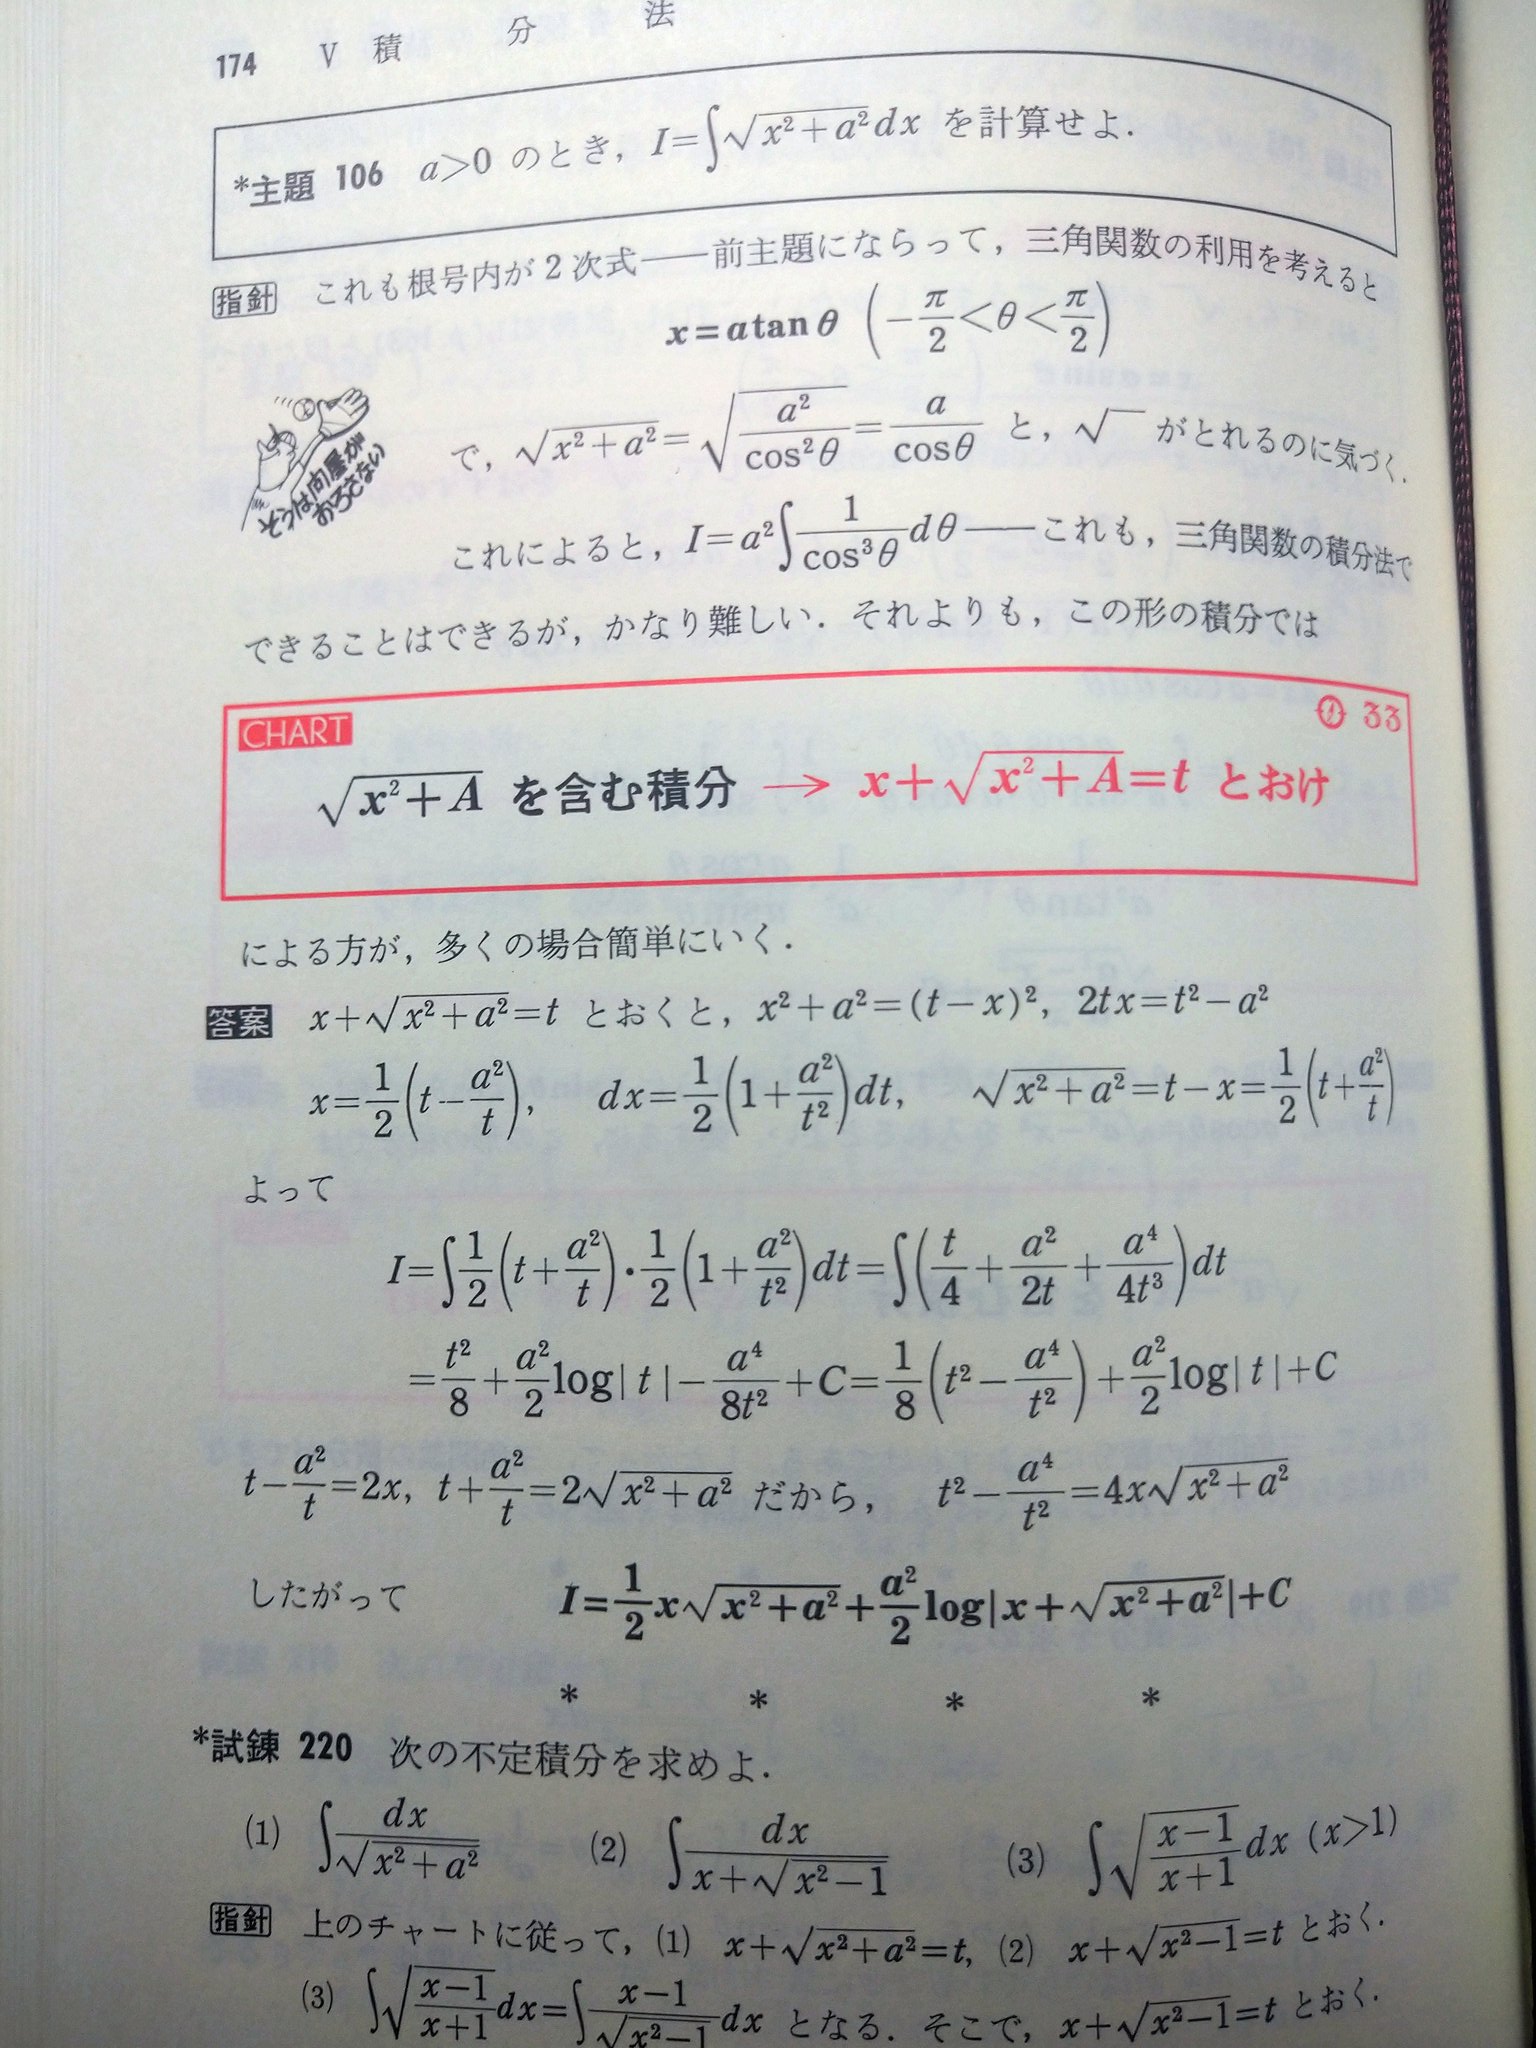 174 V 積分法
*主題 106 a>0 のとき, I=∫√(x²+a²)dx を計算せよ.
指針 これも根号内が2次式——前主題にならって, 三角関数の利用を考えると
x=atanθ (-π/2<θ<π/2)
で, √(x²+a²)=√(a²/cos²θ)=a/cosθ と, √ がとれるのに気づく.
そうは問屋が
おろさない
これによると, I=a²∫1/cos³θ dθ——これも, 三角関数の積分法で
できることはできるが, かなり難しい. それよりも, この形の積分では
CHART 33
√(x²+A) を含む積分 → x+√(x²+A)=t とおけ
による方が, 多くの場合簡単にいく.
答案 x+√(x²+a²)=t とおくと, x²+a²=(t-x)², 2tx=t²-a²
x=1/2(t-a²/t), dx=1/2(1+a²/t²)dt, √(x²+a²)=t-x=1/2(t+a²/t)
よって
I=∫1/2(t+a²/t)・1/2(1+a²/t²)dt=∫(t/4+a²/2t+a⁴/4t³)dt
=t²/8+a²/2 log|t|-a⁴/8t²+C=1/8(t²-a⁴/t²)+a²/2 log|t|+C
t-a²/t=2x, t+a²/t=2√(x²+a²) だから, t²-a⁴/t²=4x√(x²+a²)
したがって I=1/2 x√(x²+a²)+a²/2 log|x+√(x²+a²)|+C
* * * *
*試錬 220 次の不定積分を求めよ.
(1) ∫dx/√(x²+a²) (2) ∫dx/(x+√(x²-1)) (3) ∫√((x-1)/(x+1))dx (x>1)
指針 上のチャートに従って, (1) x+√(x²+a²)=t, (2) x+√(x²-1)=t とおく.
(3) ∫√((x-1)/(x+1))dx=∫(x-1)/√(x²-1) dx となる. そこで, x+√(x²-1)=t とおく.